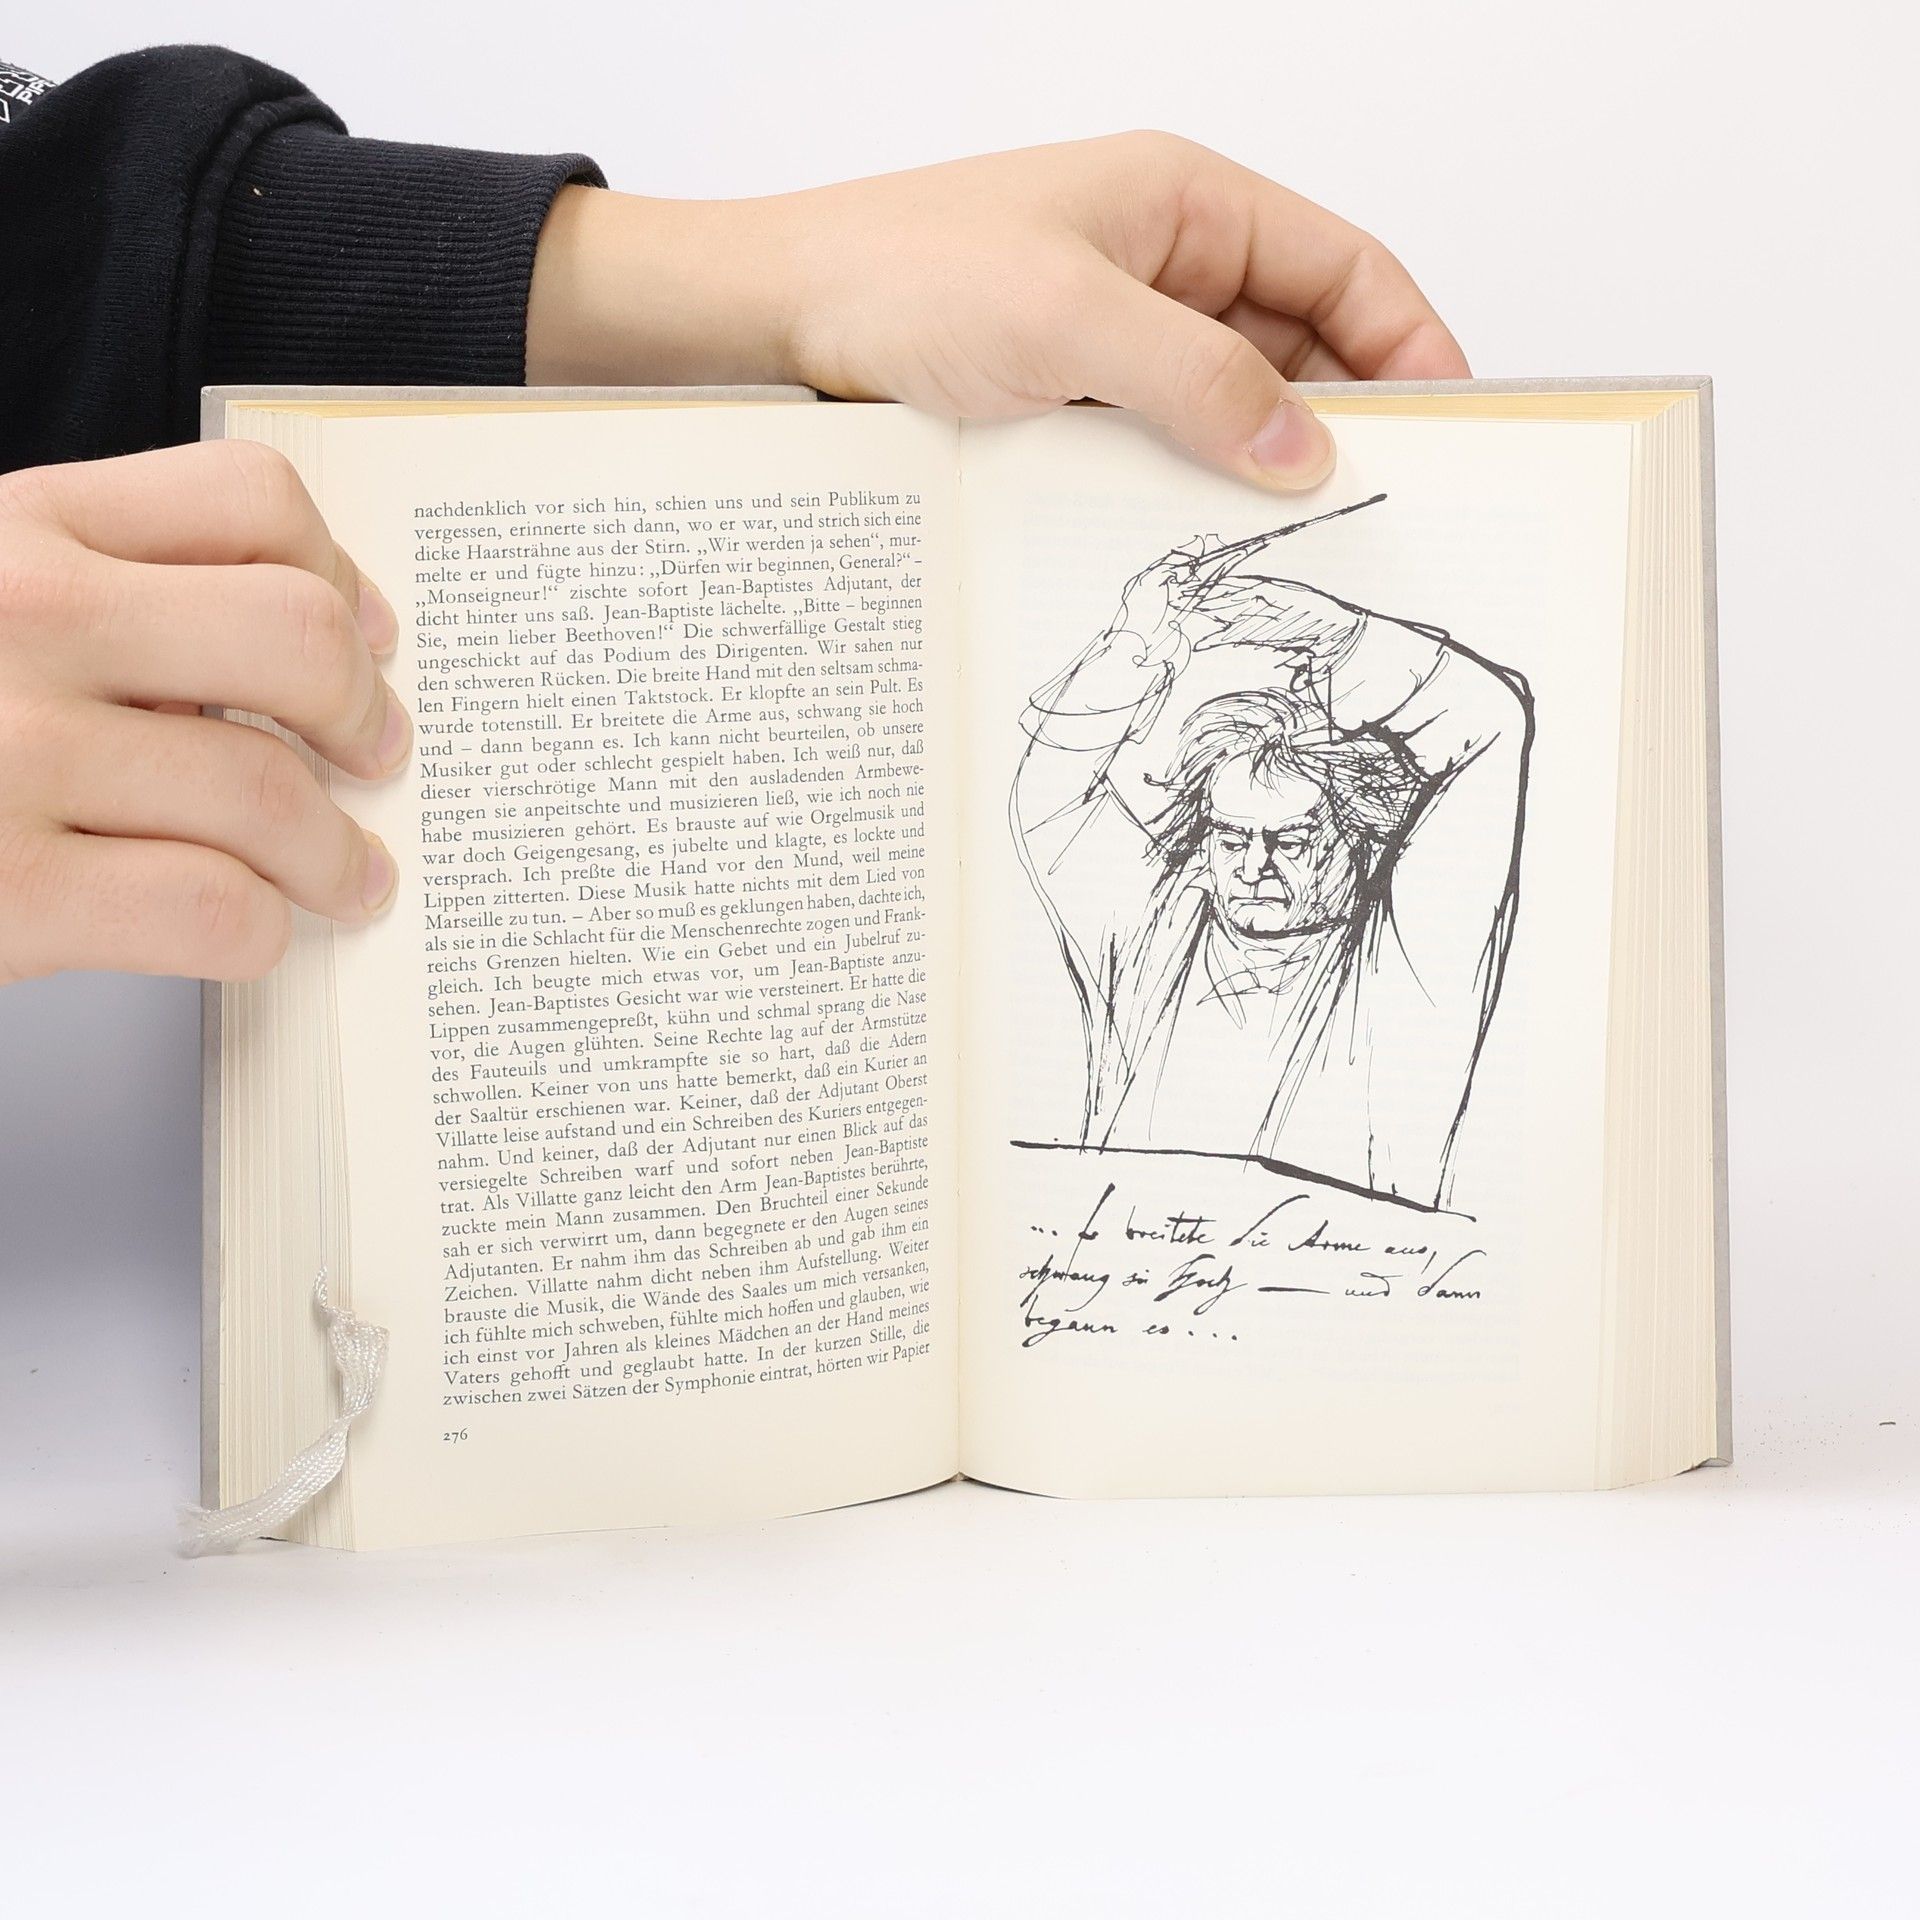 nachdenklich vor sich hin, schien uns und sein Publikum zu
vergessen, erinnerte sich dann, wo er war, und strich sich eine
dicke Haarsträhne aus der Stirn. „Wir werden ja sehen“, mur-
melte er und fügte hinzu: „Dürfen wir beginnen, General?“ –
„Monseigneur!“ zischte sofort Jean-Baptistes Adjutant, der
dicht hinter uns saß. Jean-Baptiste lächelte. „Bitte – beginnen
Sie, mein lieber Beethoven!“ Die schwerfällige Gestalt stieg
ungeschickt auf das Podium des Dirigenten. Wir sahen nur
den schweren Rücken. Die breite Hand mit den seltsam schma-
len Fingern hielt einen Taktstock. Er klopfte an sein Pult. Es
wurde totenstill. Er breitete die Arme aus, schwang sie hoch
und – dann begann es. Ich kann nicht beurteilen, ob unsere
Musiker gut oder schlecht gespielt haben. Ich weiß nur, daß
dieser vierschrötige Mann mit den ausladenden Armbewe-
gungen sie anpeitschte und musizieren ließ, wie ich noch nie
habe musizieren gehört. Es brauste auf wie Orgelmusik und
war doch Geigengesang, es jubelte und klagte, es lockte und
versprach. Ich preßte die Hand vor den Mund, weil meine
Lippen zitterten. Diese Musik hatte nichts mit dem Lied von
Marseille zu tun. – Aber so muß es geklungen haben, dachte ich,
als sie in die Schlacht für die Menschenrechte zogen und Frank-
reichs Grenzen hielten. Wie ein Gebet und ein Jubelruf zu-
gleich. Ich beugte mich etwas vor, um Jean-Baptiste anzu-
sehen. Jean-Baptistes Gesicht war wie versteinert. Er hatte die
Lippen zusammengepreßt, kühn und schmal sprang die Nase
vor, die Augen glühten. Seine Rechte lag auf der Armstütze
des Fauteuils und umkrampfte sie so hart, daß die Adern
schwollen. Keiner von uns hatte bemerkt, daß ein Kurier an
der Saaltür erschienen war. Keiner, daß der Adjutant Oberst
Villatte leise aufstand und ein Schreiben des Kuriers entgegen-
nahm. Und keiner, daß der Adjutant nur einen Blick auf das
versiegelte Schreiben warf und sofort neben Jean-Baptiste
trat. Als Villatte ganz leicht den Arm Jean-Baptistes berührte,
zuckte mein Mann zusammen. Den Bruchteil einer Sekunde
sah er sich verwirrt um, dann begegnete er den Augen seines
Adjutanten. Er nahm ihm das Schreiben ab und gab ihm ein
Zeichen. Villatte nahm dicht neben ihm Aufstellung. Weiter
brauste die Musik, die Wände des Saales um mich versanken,
ich fühlte mich schweben, fühlte mich hoffen und glauben, wie
ich einst vor Jahren als kleines Mädchen an der Hand meines
Vaters gehofft und geglaubt hatte. In der kurzen Stille, die
zwischen zwei Sätzen der Symphonie eintrat, hörten wir Papier
276
... Er breitete die Arme aus,
schwang sie hoch — und dann
begann es...